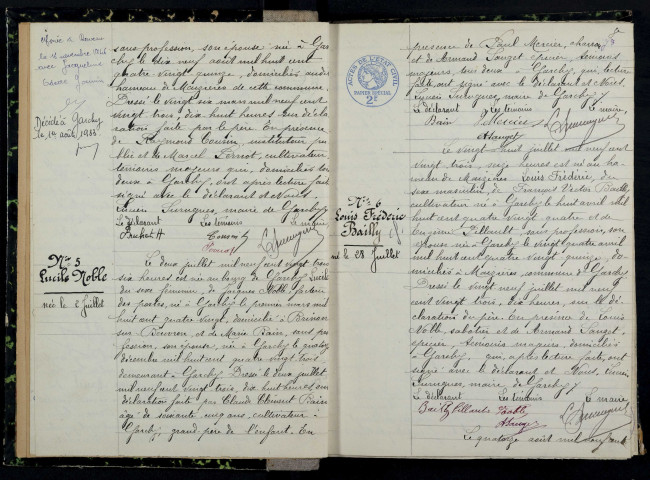 Mariée à
le 16 novembre 1946
avec Jacqueline
Décédé à Garchy
le, 19 août 1988
sans profession, son épouse née à Gar-
chy le dix neuf août mil huit cent
quatre vingt quinze, domiciliés au dit
hameau de Mezières de cette commune.
Dressé le vingt six mars mil neuf cent
vingt trois, dix huit heures sur décla-
ration faite par le père. En présence
de Raymond Cousin, instituteur pu-
blic et de Marcel Pernot, cultivateur,
témoins majeurs qui, domiciliés tous
deux à Garchy, ont après lecture faite
signé avec le déclarant et Nous,
Lucien maire de Garchy
Le déclarant Les témoins Le maire
Nº 5
Lucile Noble
née le 2 juillet
Le deux juillet mil neuf cent vingt trois
six heures est née au bourg de Garchy Lucile
du sexe féminin, de Noble, facteur
des postes, né à Garchy le premier mars mil
huit cent quatre vingt, domicilié à Brinon
sur Beuvron, et de Marie Bain, sans pro-
fession, son épouse, née à Garchy le quatorze
décembre mil huit cent quatre vingt trois
demeurant à Garchy. Dressé le deux juillet
mil neuf cent vingt trois, dix huit heures sur
déclaration faite par Claude Clément Bain
âgé de soixante cinq ans, cultivateur à
Garchy, grand père de l'enfant. En
présence de Paul Mercier, charron
et de Armand Sauget, épicier, témoins
majeurs, tous deux à Garchy, qui, lecture
faite, ont signé avec le déclarant et Nous,
Lucien maire de Garchy
Le déclarant Les témoins Le maire,
Bain Mercier
ASauget
ACTES DE L'ETAT CIVIL
PAPIER SPÉCIAL
2F
Nº 6
Louis Frédéric
Bailly
né le 28 Juillet
Le vingt huit juillet mil neuf cent
vingt trois, onze heures est né au ha-
meau de Mezières Louis Frédéric, du
sexe masculin de François Victor Bailly
cultivateur né à Garchy le huit avril mil
huit cent quatre vingt quatre et de
Eugénie Villault sans profession, son
épouse née à Garchy le vingt quatre avril
mil huit cent quatre vingt quinze, do-
miciliés à Mezières, commune de Garchy
Dressé le vingt neuf juillet mil neuf
cent vingt trois, dix heures, sur la dé-
claration du père. En présence de Louis
Noble, sabotier et de Armand Sauget,
épicier, témoins majeurs, domiciliés
à Garchy qui, après lecture faite, ont
signé avec le déclarant et Nous, Lucien
maire de Garchy
Le déclarant Les témoins Le maire
Bailly Villault Noble
ASauget
Le quatorze août mil neuf cent